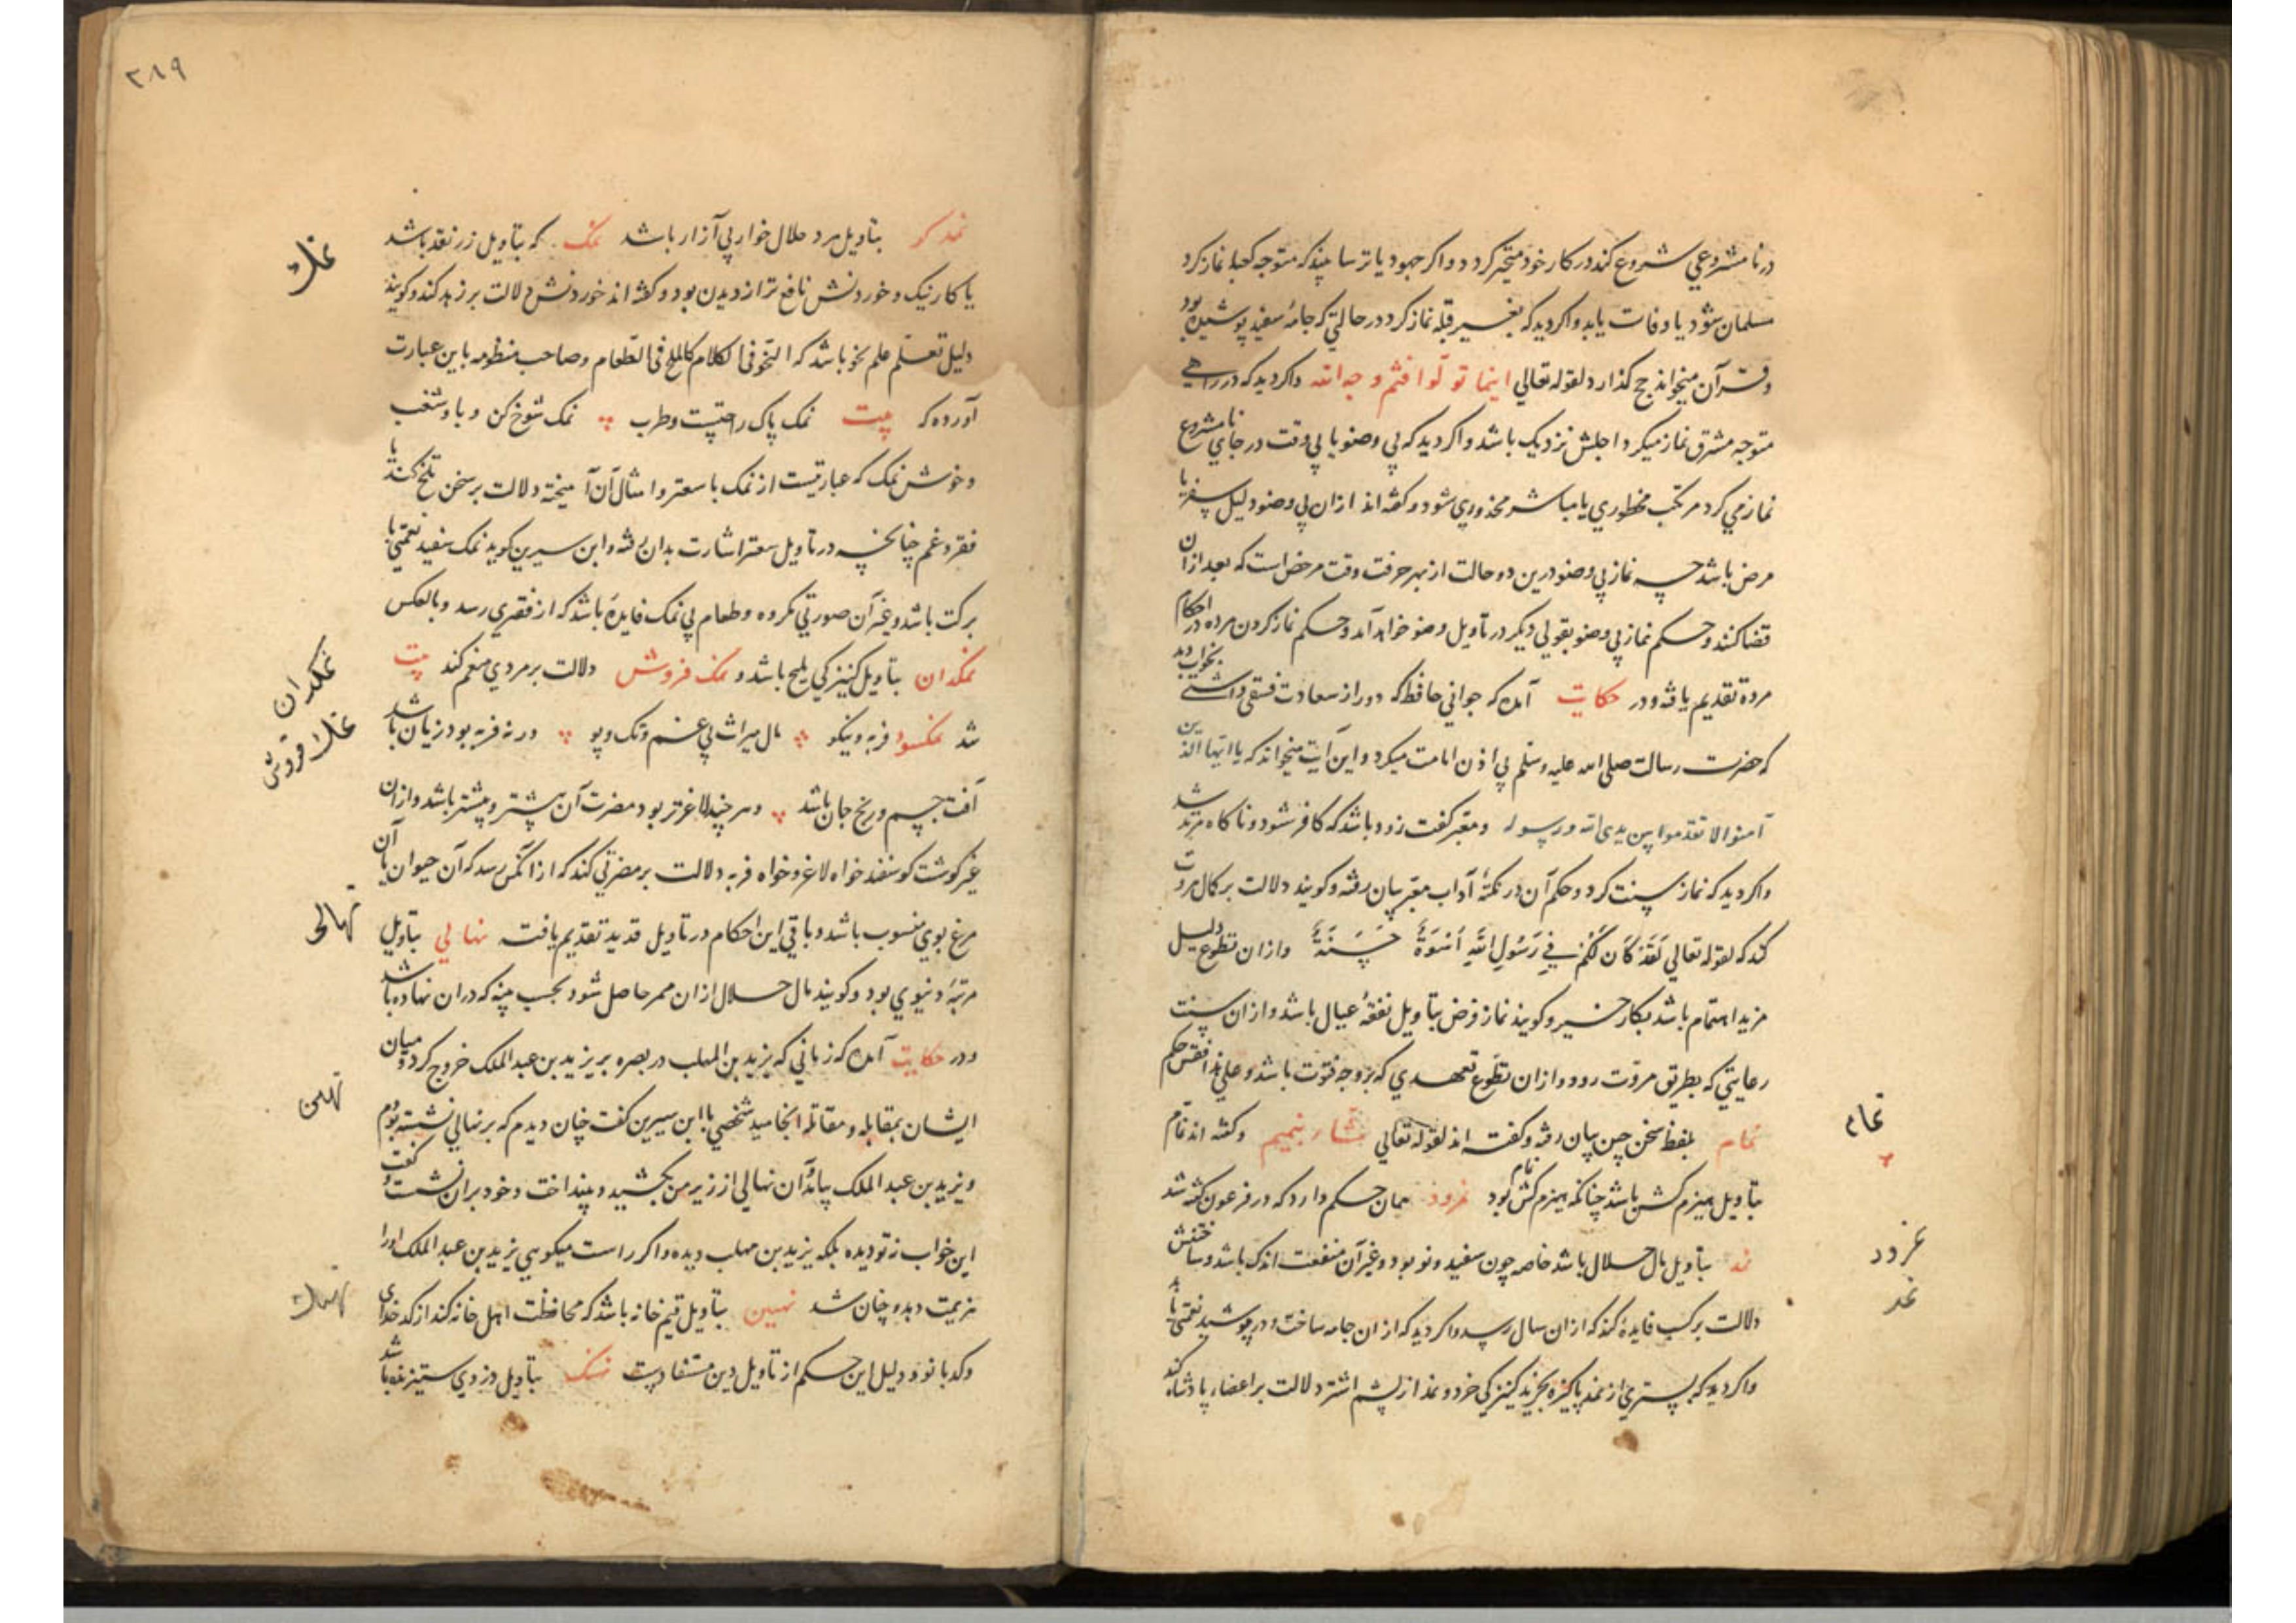 در نامشروعی شروع کند در کار خود متحیر کردد و اکر جهود یا ترسا بیند که متوجه کعبه نماز کرد
مسلمان شود یا وفات یابد و اکر دید که بغیر قبله نماز کرد در حالتی که جامهٔ سفید پوشیده بود
و قرآن میخواند حج کذارد لقوله تعالی اینما تولوا فثم وجه الله و اکر دید که در راهی
متوجه مشرق نماز میکرد اجلش نزدیک باشد و اکر دید که بی وضو یا بی وقت در جای نامشروع
نماز می کرد مرتکب محظوری یا مباشر محذوری شود و کفته اند ازان بی وضو دلیل سفر یا
مرض باشد چه نماز بی وضو درین دو حالت از بهر حرفت وقت مرخص است که بعد ازان
قضا کنند و حکم نماز بی وضو بقولی دیکر در تاویل وضو خواهد آمد و حکم نماز کردن مرده در احکام
مرده تقدیم یافته و در حکایت آمده که جوانی حافظ که دور از سعادت فسقی داشتی بخواب دید
که حضرت رسالت صلی الله علیه وسلم بی اذن امامت میکرد و این آیت میخواند که یا ایها الذین
آمنوا لا تقدموا بین یدی الله و رسوله و معبر کفت زود باشد که کافر شود و ناکاه مرتد شد
و اکر دید که نماز سنت کرد و حکم آن در نکتهٔ آداب معبر بیان رفته و کویند دلالت بر کمال مروت
کند که لقوله تعالی لَقَدْ کَانَ لَکُمْ فِی رَسُولِ اللَّهِ اُسْوَةٌ حَسَنَةٌ و ازان تطوع دلیل
مزید اهتمام باشد بکار خیر و کویند نماز فرض بتاویل نفقهٔ عیال باشد و ازان سنت
رعایتی که بطریق مروت رود و ازان تطوع تعهدی که بر وجه فتوت باشد و علی هذا فقس حکم
نمام بلفظ سخن چین بیان رفته و کفته اند لقوله تعالی مشاء بنمیم و کفته اند نمام
بتاویل هیزم کش باشد چنانکه هیزم کش نمام بود نمرود همان حکم دارد که در فرعون کفته شد
نمد بتاویل مال حلال باشد خاصه چون سفید و نو بود و غیر آن منفعت اندک باشد و ساختنش
دلالت بر کسب فایدهٔ کند که ازان سال رسد و اکر دید که ازان جامه ساخت و در پوشید نعمتی باشد
و اکر دید که بستری از نمد پاکیزه بخرید کنیزکی خرد و نمد از پشم اشتر دلالت بر اعضاء پادشاه کند
نمام
نمرود
نمد
۳۸۹
نمدکر بتاویل مرد حلال خوار بی آزار باشد نمک که بتاویل زر نقد باشد
یا کار نیک و خوردنش نافع تر از دیدن بود و کفته اند خوردنش دلالت بر زهد کند و کویند
دلیل تعلم علم نحو باشد که النحو فی الکلام کالملح فی الطعام و صاحب منظومه باین عبارت
آورده که بیت نمک پاک راحتست و طرب نمک شوخ کن وبا و شغب
و خوش نمک که عبارتیست از نمک با سعتر و امثال آن آمیخته دلالت بر سخن تلخ کند یا
فقر و غم چنانچه در تاویل سعتر اشارت بدان رفته و ابن سیرین کوید نمک سفید نعمتی با
برکت باشد و غیر آن صورتی مکروه و طعام بی نمک فایدهٔ باشد که از فقری رسد و بالعکس
نمکدان بتاویل کنیزکی ملیح باشد و نمک فروش دلالت بر مردی منعم کند بیت
شد نمکسود فربه و نیکو مال میراث بی غم و تک و پو ور نه فربه بود زیان باشد
آفت جسم و رنج جان باشد و هر چند لاغرتر بود مضرت آن بیشتر و پیشتر باشد و ازان
غیر کوشت کوسفند خواه لاغر و خواه فربه دلالت بر مضرتی کند که از آنکس رسد که آن حیوان یا آن
مرغ بوی منسوب باشد و باقی این احکام در تاویل قدید تقدیم یافت نهالی بتاویل
مرتبهٔ دنیوی بود و کویند مال حلال ازان ممر حاصل شود بحسب پنبه که دران نهاده باشد
و در حکایت آمده که زمانی که یزید بن المهلب در بصره بر یزید بن عبد الملک خروج کرد و میان
ایشان بمقابله و مقاتله انجامید شخصی با ابن سیرین کفت چنان دیدم که بر نهالی نشسته بودم
و یزید بن عبد الملک بیامد آن نهالی از زیر من بکشید و بینداخت و خود بران نشست کفت
این خواب نه تو دیده بلکه یزید بن مهلب دیده و اکر راست میکویی یزید بن عبد الملک او را
هزیمت دهد و چنان شد نهبین بتاویل قیم خانه باشد که محافظت اهل خانه کند از کدخدای
و کدبانو و دلیل این حکم از تاویل دین مستفادست نهنک بتاویل دزدی ستیزنده باشد
نمک
نمکدان
نمک فروش
نهالی
نهبین
نهنک